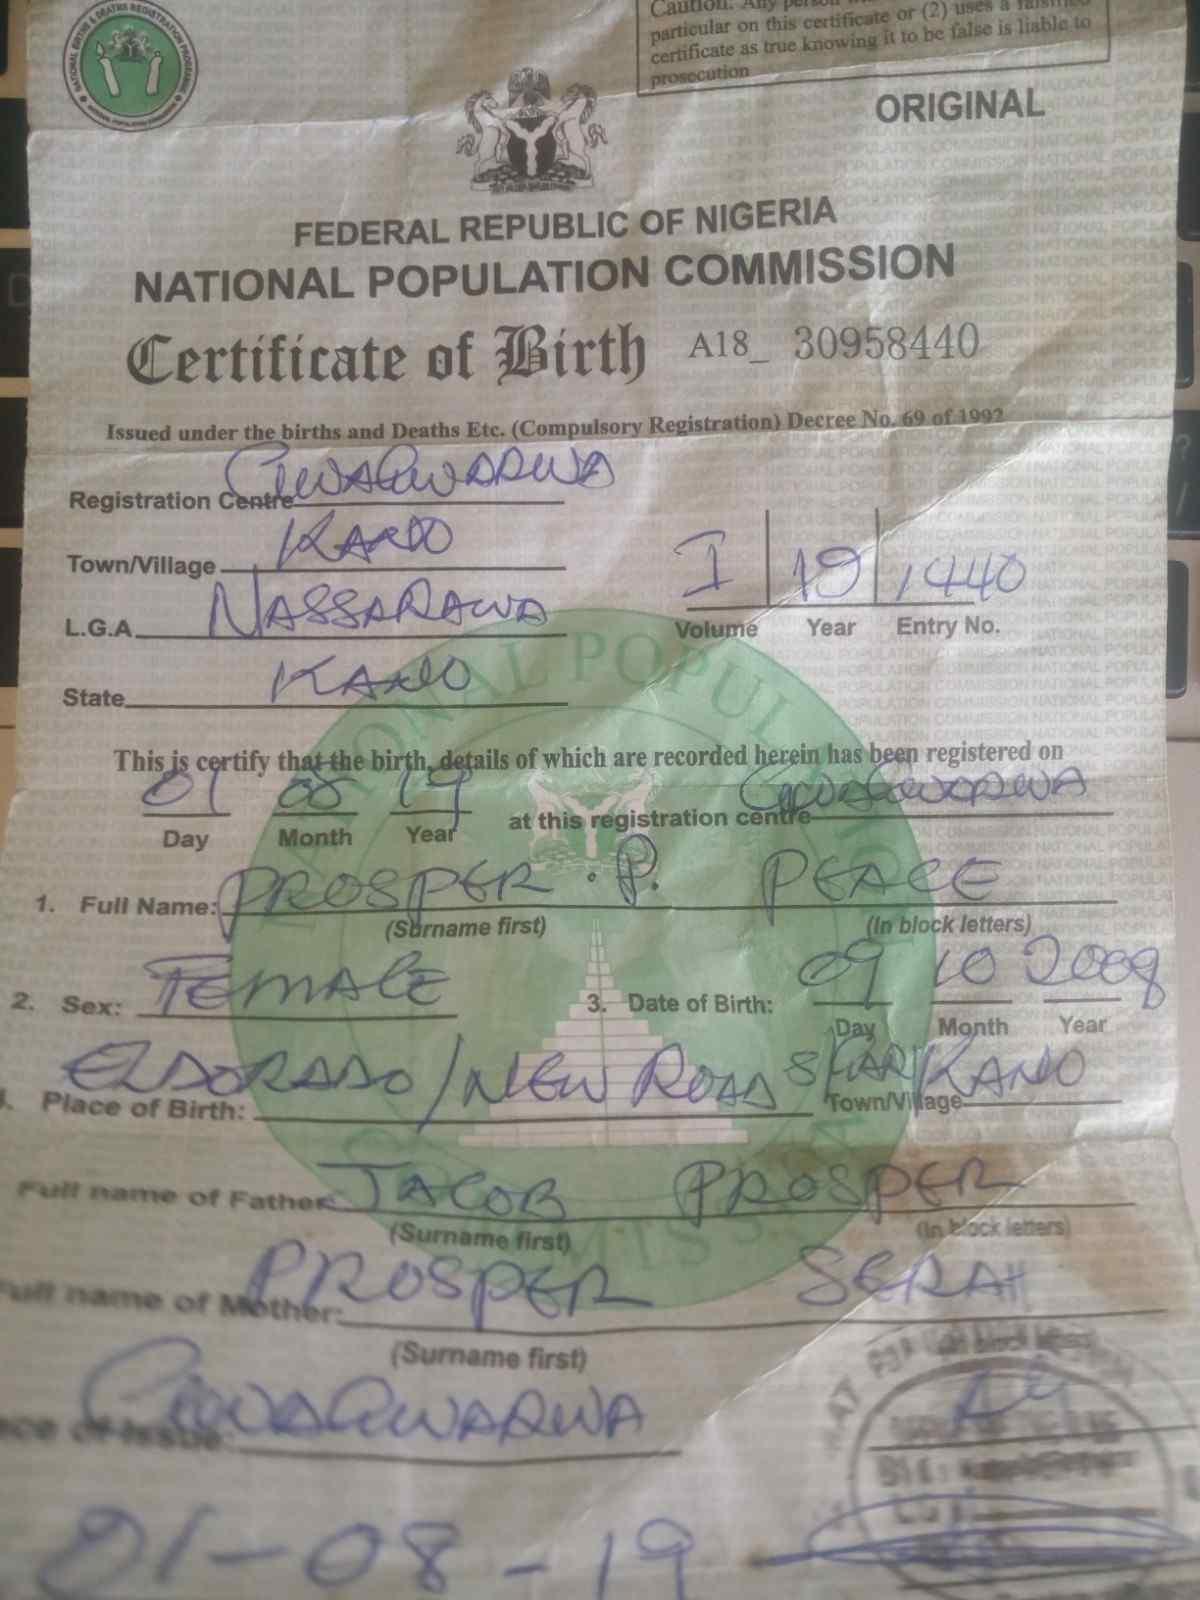 NATIONAL BIRTHS & DEATHS REGISTRATION PROGRAMME
NATIONAL POPULATION COMMISSION
Caution: Any person
particular on this certificate or (2) uses a falsified
certificate as true knowing it to be false is liable to
prosecution
ORIGINAL
FEDERAL REPUBLIC OF NIGERIA
NATIONAL POPULATION COMMISSION
Certificate of Birth A18_ 30958440
Issued under the births and Deaths Etc. (Compulsory Registration) Decree No. 69 of 1992
Registration Centre GWAGWARWA
Town/Village KANO
L.G.A NASSARAWA
State KANO
I 19 1440
Volume Year Entry No.
This is certify that the birth, details of which are recorded herein has been registered on
01 08 19 at this registration centre GWAGWARWA
Day Month Year
1. Full Name: PROSPER . P. PEACE
(Surname first) (In block letters)
2. Sex: FEMALE 3. Date of Birth: 09 10 2008
Day Month Year
Place of Birth: ELDORADO / NEW ROAD Town/Village KANO
Full name of Father JACOB PROSPER
(Surname first) (In block letters)
Full name of Mother: PROSPER SERAH
(Surname first)
GWAGWARWA
01-08-19